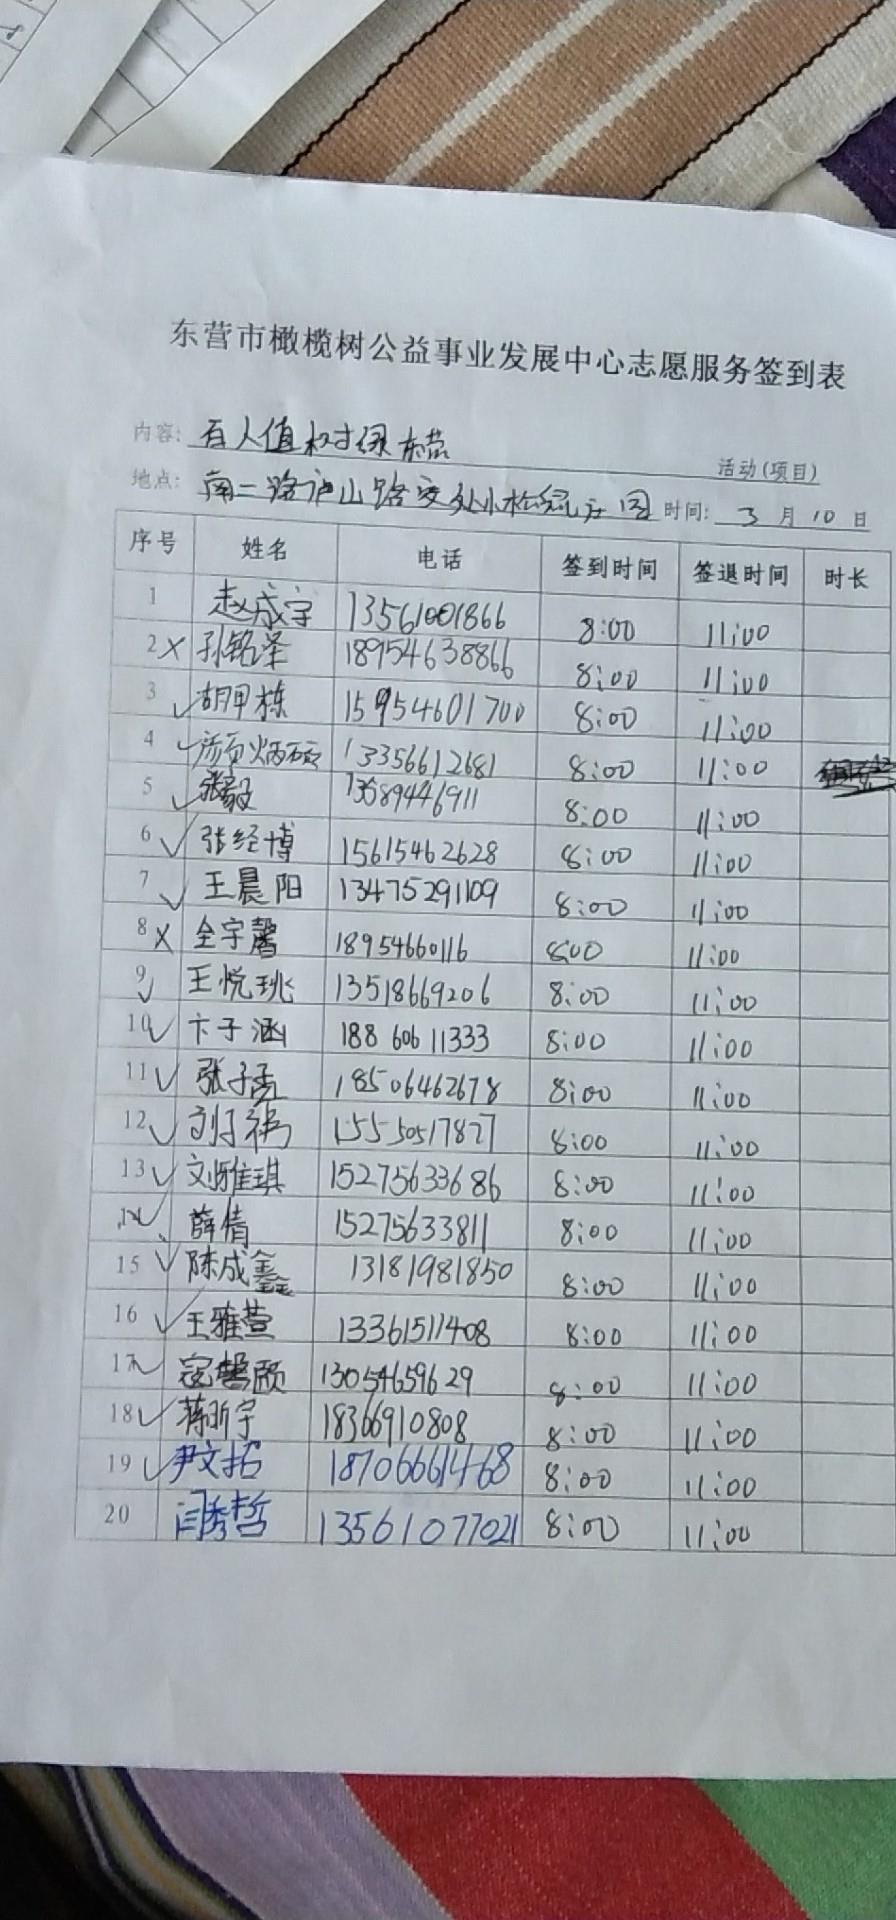 东营市橄榄树公益事业发展中心志愿服务签到表
内容: 百人值树绿东营 活动(项目)
地点: 南二路庐山路交处小松 园 时间: 3 月 10 日
序号 姓名 电话 签到时间 签退时间 时长
1 赵成宇 13561001866 8:00 11:00
2 × 孙铭泽 18954638866 8:00 11:00
3 ✓ 胡甲栋 15954601700 8:00 11:00
4 ✓ 13356612681 8:00 11:00
5 ✓ 张毅 13589446911 8:00 11:00
6 ✓ 张经博 15615462628 8:00 11:00
7 ✓ 王晨阳 13475291109 8:00 11:00
8 × 全宇馨 18954660116 8:00 11:00
9 ✓ 王悦珧 13518669206 8:00 11:00
10 ✓ 卞子涵 188 606 11333 8:00 11:00
11 ✓ 张子 18506462678 8:00 11:00
12 ✓ 刘子祎 15550517827 8:00 11:00
13 ✓ 刘雅琪 15275633686 8:00 11:00
14 ✓ 薛倩 15275633811 8:00 11:00
15 ✓ 陈成鑫 13181981850 8:00 11:00
16 ✓ 王雅萱 13361511408 8:00 11:00
17 ✓ 寇馨颐 13054659629 8:00 11:00
18 ✓ 蒋昕宇 18366910808 8:00 11:00
19 ✓ 尹文拓 18706661468 8:00 11:00
20 闫秀哲 13561077021 8:00 11:00